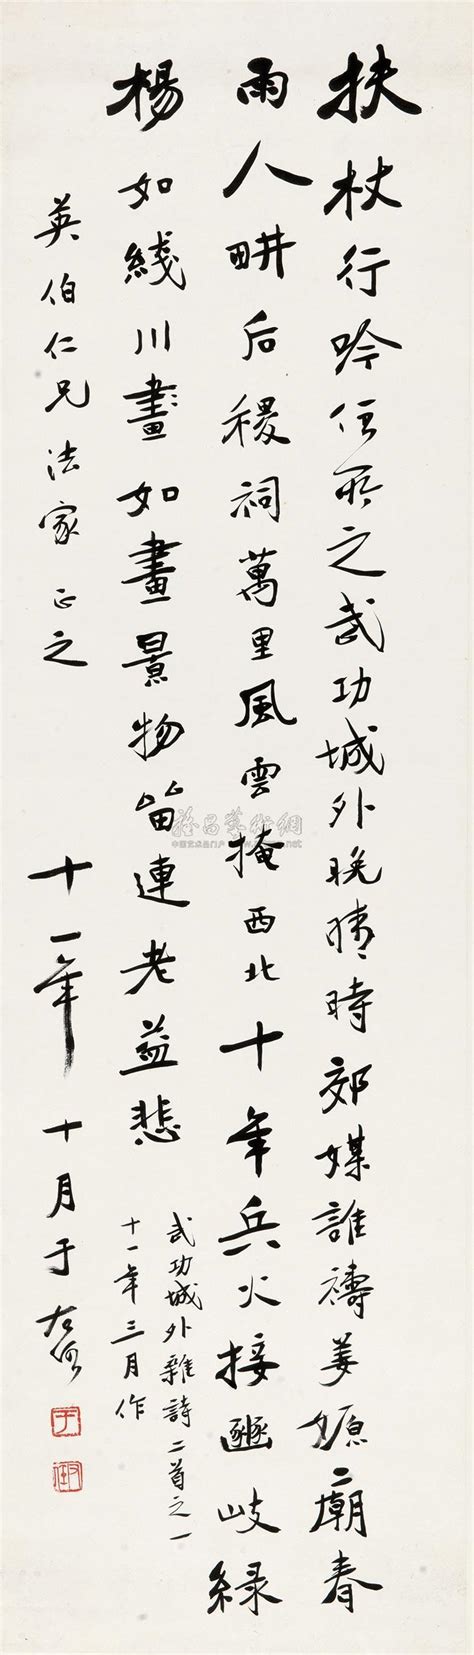 扶杖行吟任所之武功城外晚晴時郊媒誰禱姜嫄廟春
雨人畊后稷祠萬里風雲掩西北十年兵火接豳岐綠
楊如綫川畫如畫景物留連老益悲
武功城外雜詩二首之一
十一年三月作
英伯仁兄法家正之 十一年十月于右任
雅昌藝術網
中国艺术品门户